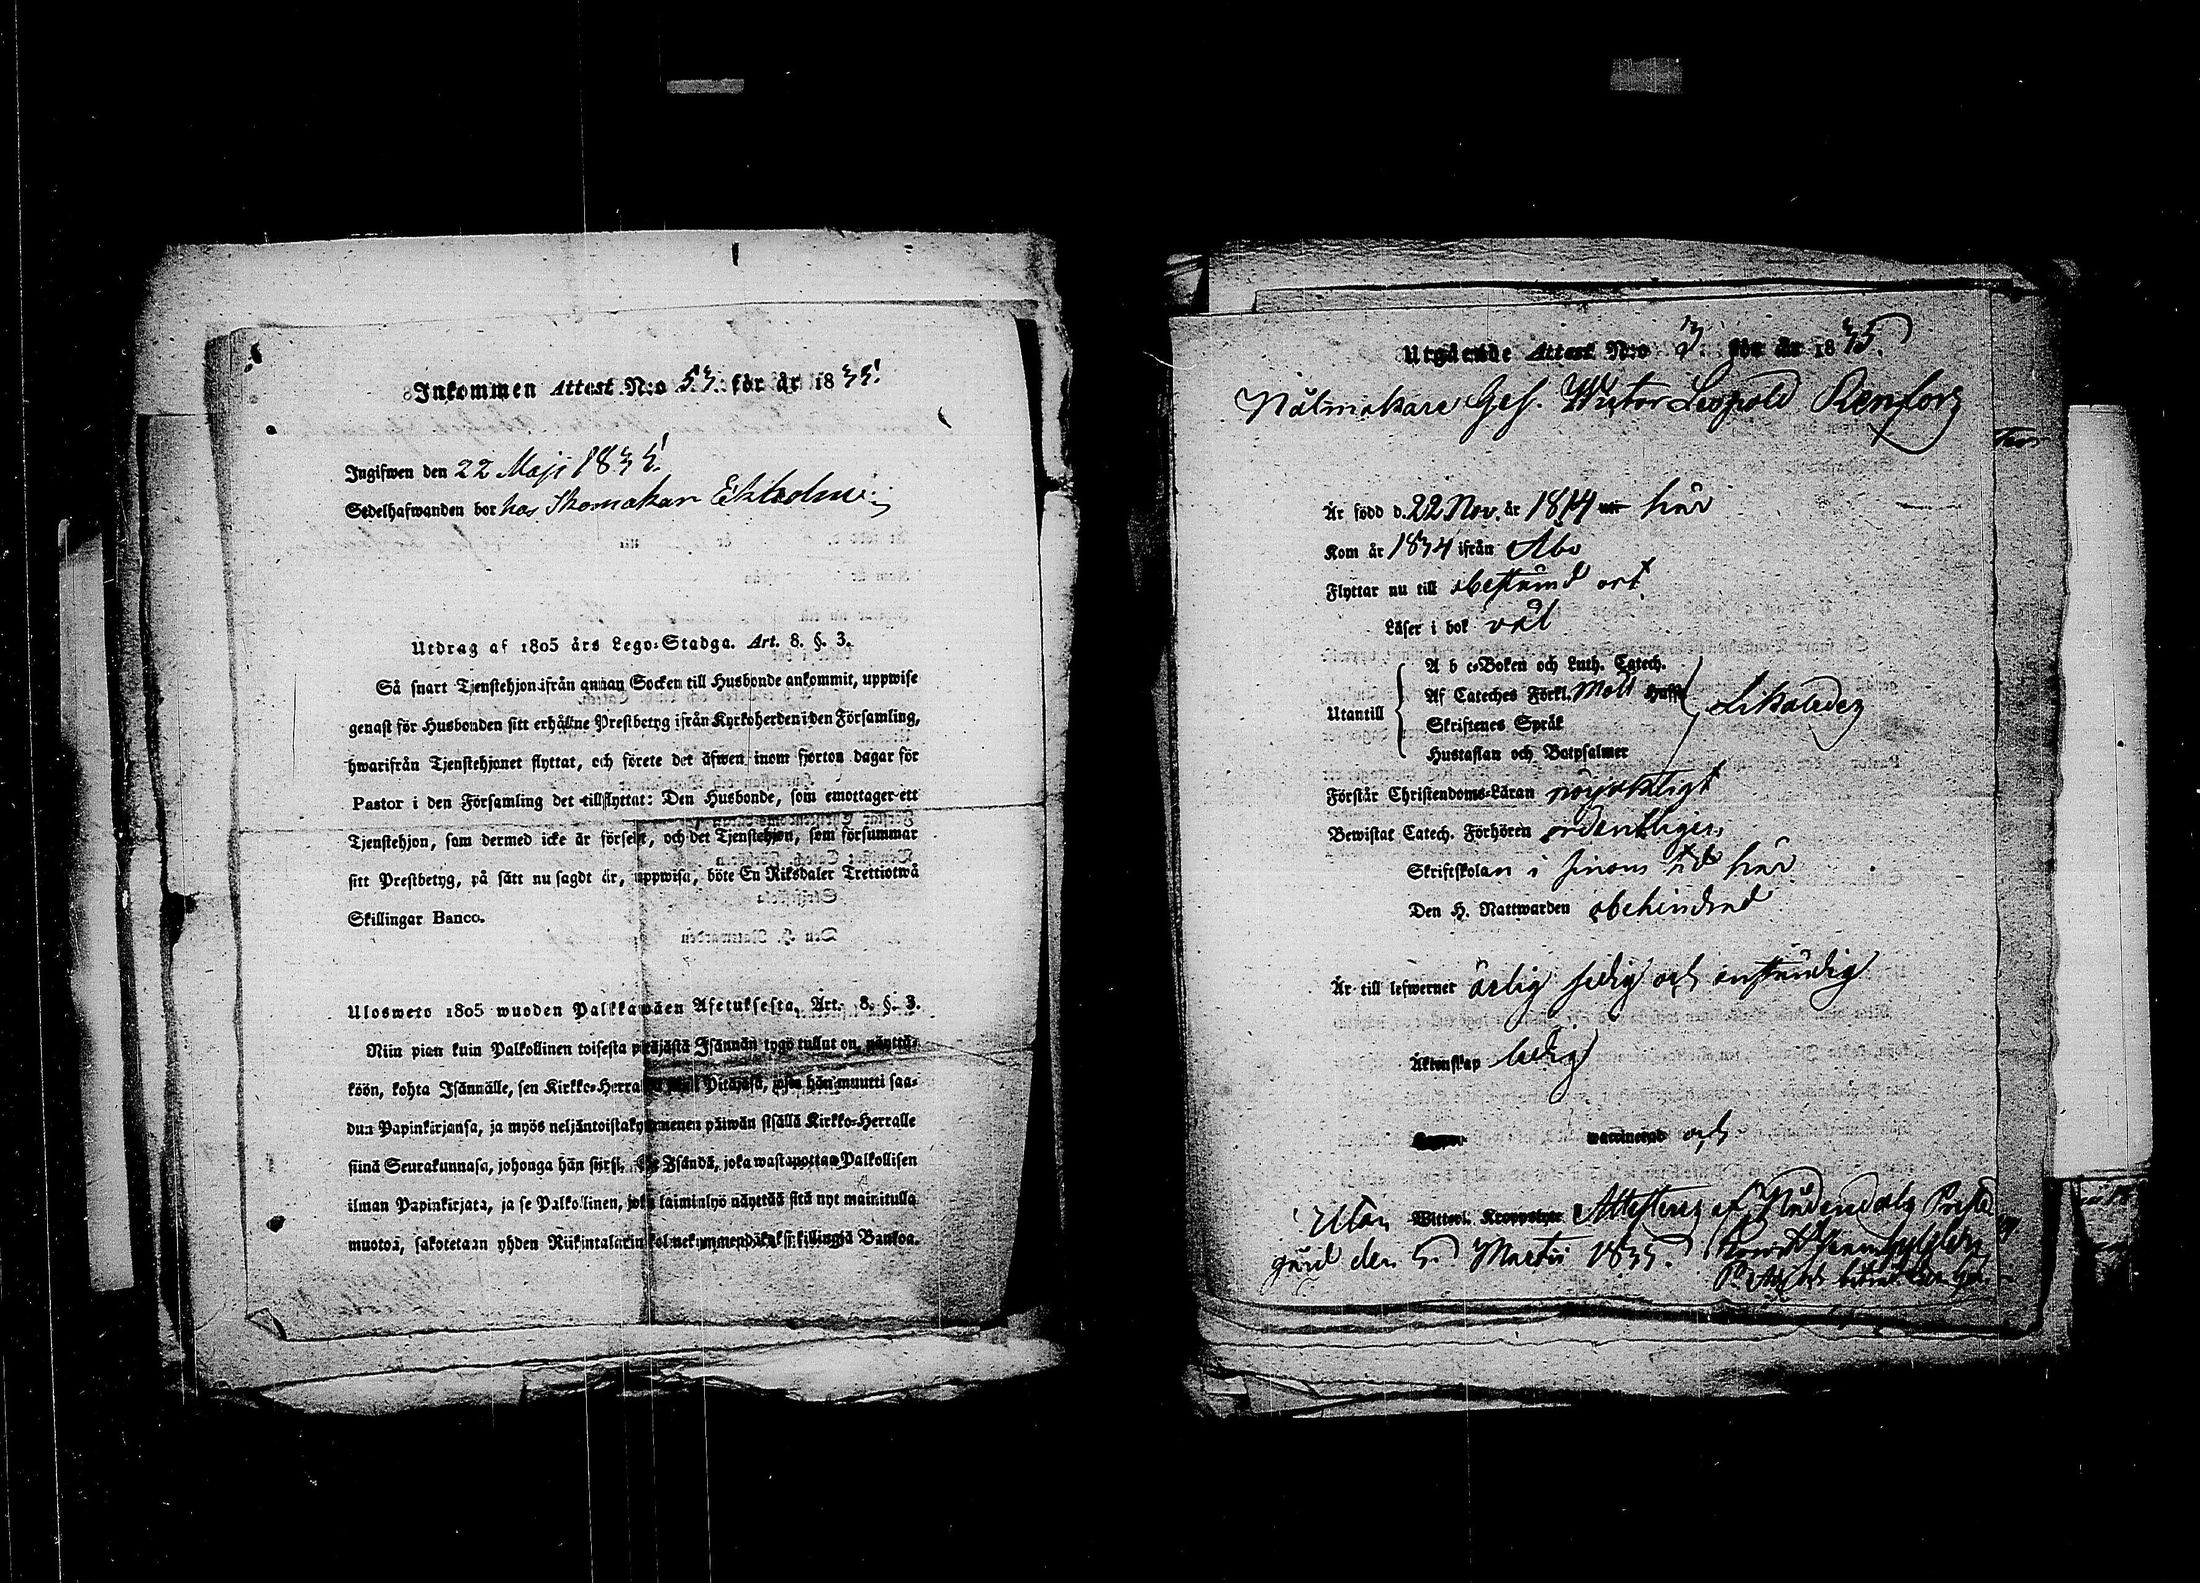 Inkommen Attest N:o 53. för år 1835.
Ingifwen den 22 Maji 1835.
Sedelhafwanden bor hos Skomakar Ekholm
Utdrag af 1805 års Lego-Stadga. Art. 8. §. 3.
Så snart Tjenstehjon ifrån annan Socken till Husbonde ankommit, uppwise
genast för Husbonden sitt erhållne Prestbetyg ifrån Kyrkoherden i den Församling,
hwarifrån Tjenstehjonet flyttat, och förete det äfwen inom fjorton dagar för
Pastor i den Församling det tillflyttat: Den Husbonde, som emottager ett
Tjenstehjon, som dermed icke är försedt, och det Tjenstehjon, som försummar
sitt Prestbetyg, på sätt nu sagdt är, uppwisa, böte En Riksdaler Trettiotwå
Skillingar Banco.
Ulosweto 1805 wuoden Palkkawäen Asetuksesta, Art. 8. §. 3.
Niin pian kuin Palkollinen toisesta pitäjästä Isännän tygö tullut on, näyttä-
köön, kohta Isännälle, sen Kirkko-Herralta Pitäjäsä, josta hän muutti saa-
dun Papinkirjansa, ja myös neljäntoistakymmenen päiwän sisällä Kirkko-Herralle
siinä Seurakunnasa, johonga hän siirsi. Isändä, joka wastanottaa Palkollisen
ilman Papinkirjata, ja se Palkollinen, joka laiminlyö näyttää sitä nyt mainitulla
muotoa, sakotetaan yhden Riikintalarin kolmekymmendäkaksi killingiä Bankoa.
Utgående Attest N:o 3. för år 1835.
Nålmakare Ges. Wictor Leopold Renfors
Är född d. 22 Nov. år 1814 här
Kom år 1834 ifrån Åbo
Flyttar nu till obestämd ort
Läser i bok väl
A b c-Boken och Luth. Catech.
Af Cateches Förkl. Möll
Utantill Likaledes
Skriftenes Språk
Hustaflan och Botpsalmer
Förstår Christendoms-Läran nöjaktigt
Bewistat Catech. Förhören ordentligen
Skriftskolan i sinom tid här
Den H. Nattwarden obehindrad
Är till lefwernet ärlig sedig och anständig
Äktenskap ledig
waccinerad och
Utan Witterl. Kroppslyte Attesteras af Nådendals Preste
gård den 5. Martii 1835.